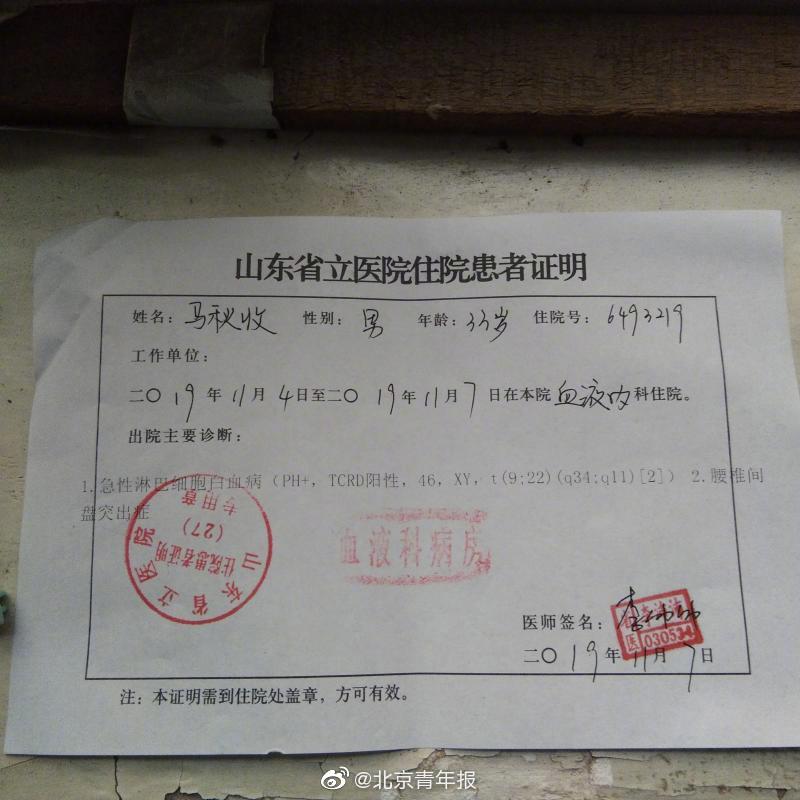 山东省立医院住院患者证明
姓名：马秋收 性别：男 年龄：33岁 住院号：6493219
工作单位：
二〇19年11月4日至二〇19年11月7日在本院血液内科住院。
出院主要诊断：
1.急性淋巴细胞白血病（PH+，TCRD阳性，46，XY，t(9;22)(q34;q11)[2]） 2.腰椎间
盘突出症
山东省立医院
住院患者证明
(27)
专用章
血液科病房
医师签名：李
医030534
二〇19年11月7日
注：本证明需到住院处盖章，方可有效。
@北京青年报